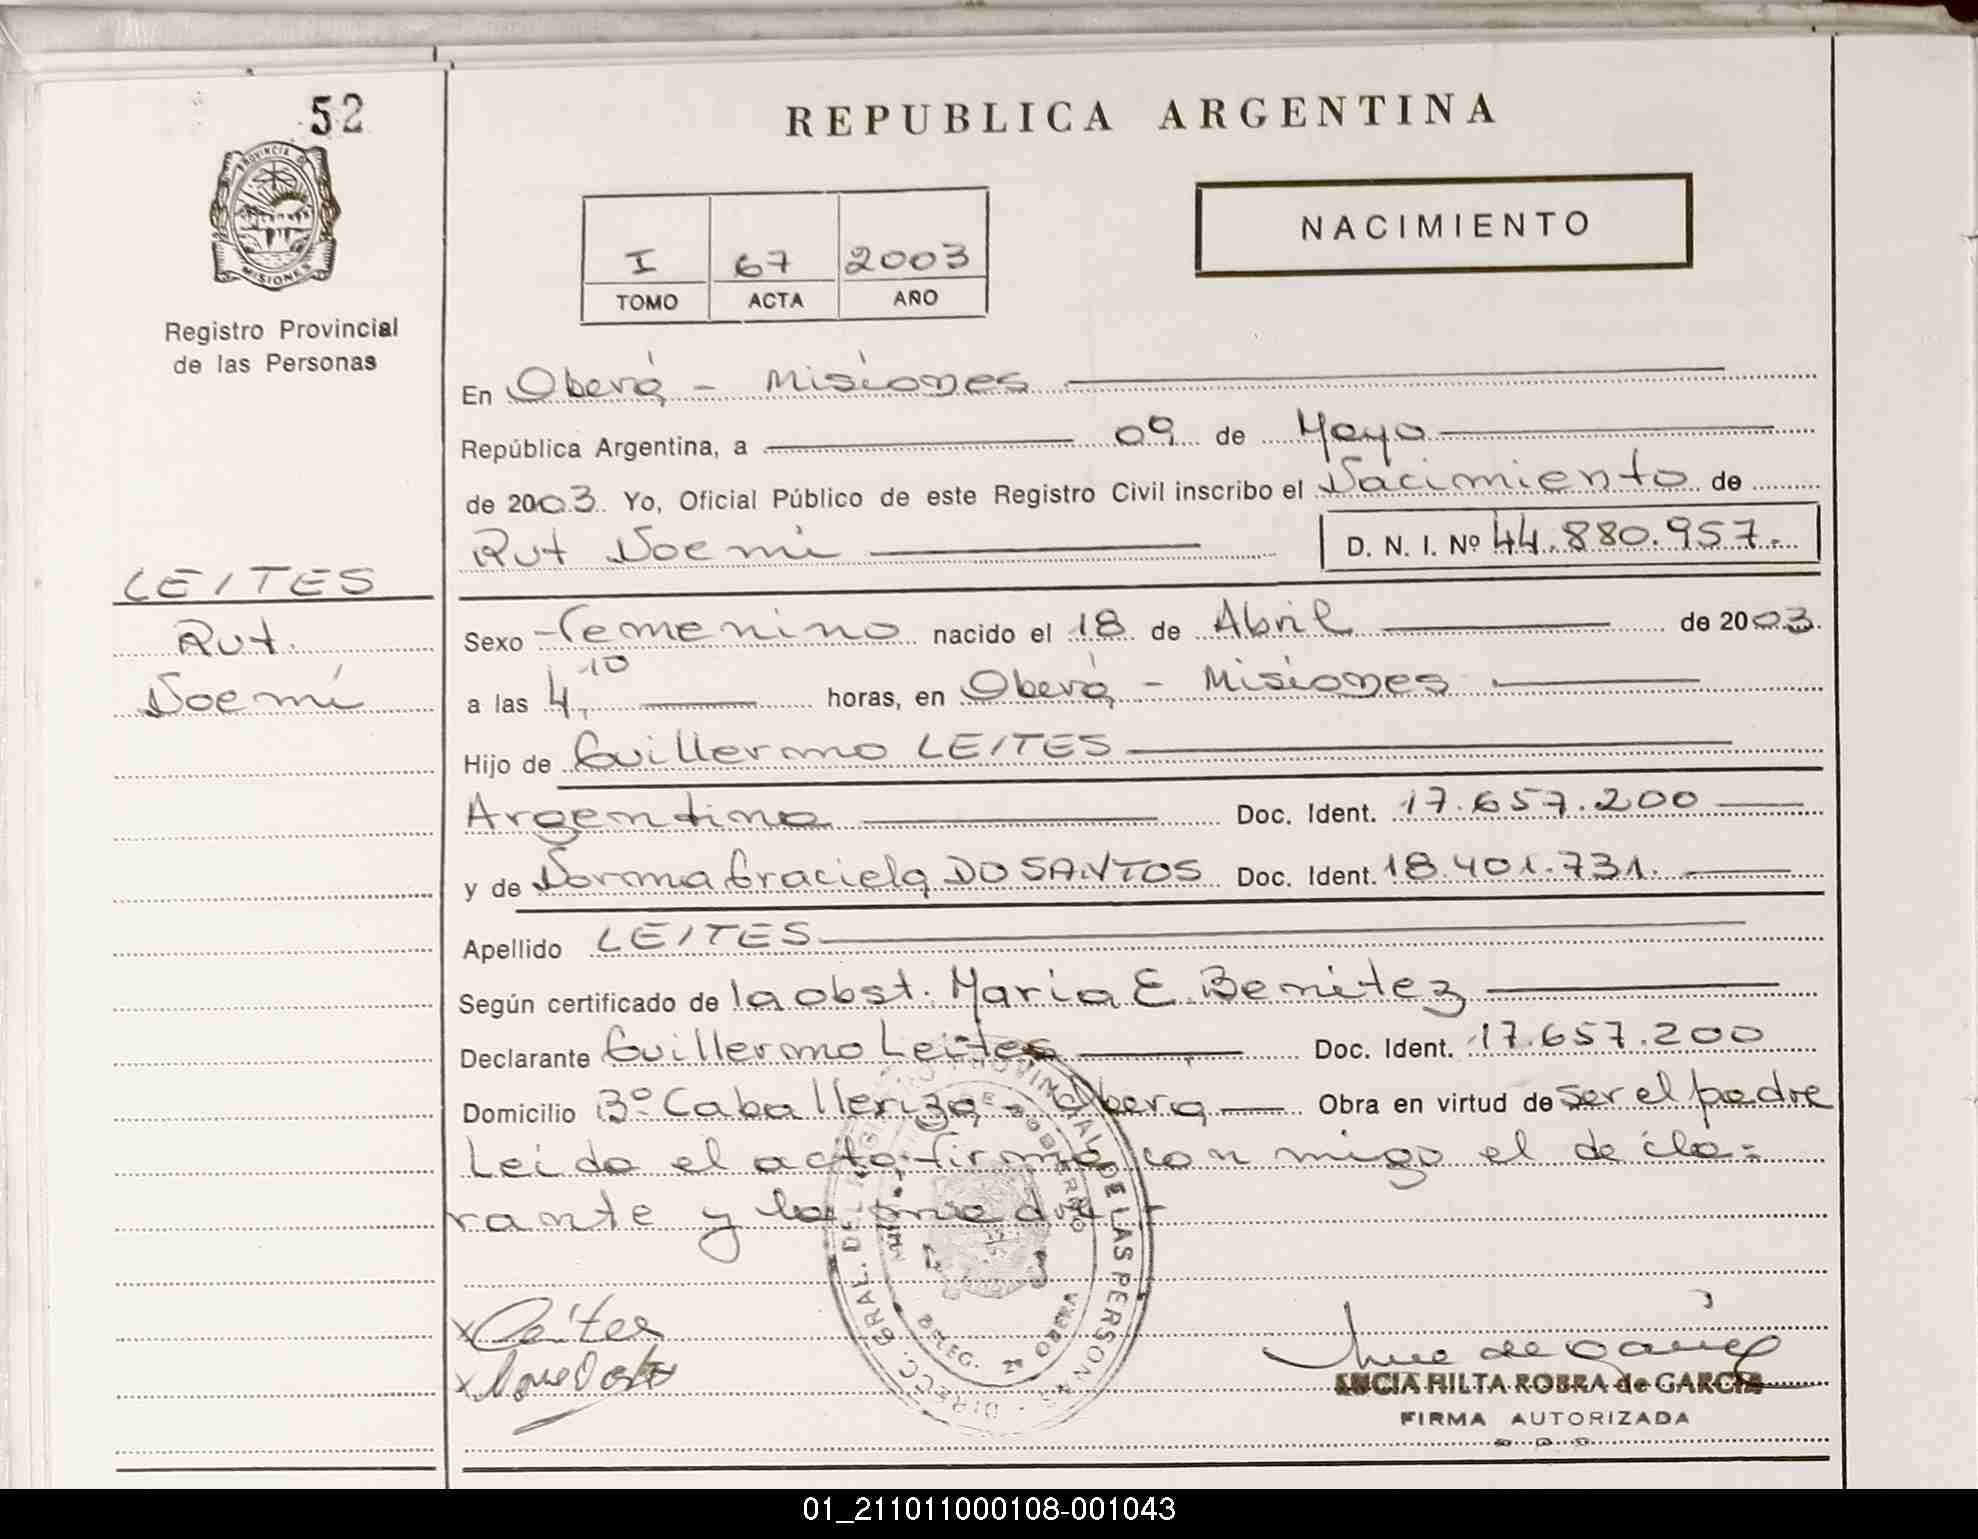 52
PROVINCIA DE
MISIONES
Registro Provincial
de las Personas
LEITES
Rut
Noemí
REPUBLICA ARGENTINA
NACIMIENTO
I 67 2003
TOMO ACTA AÑO
En Oberá - Misiones
República Argentina, a 09 de Mayo
de 2003. Yo, Oficial Público de este Registro Civil inscribo el Nacimiento de
Rut Noemi D. N. I. Nº 44.880.957.-
Sexo Femenino nacido el 18 de Abril de 2003.
a las 4,10 horas, en Oberá - Misiones
Hijo de Guillermo LEITES
Argentino Doc. Ident. 17.657.200
y de Norma Graciela DO SANTOS Doc. Ident. 18.401.731.
Apellido LEITES
Según certificado de la obst. Maria E. Benitez
Declarante Guillermo Leites Doc. Ident. 17.657.200
Domicilio Bº Caballeriza - Obera Obra en virtud de ser el padre
Leido el acta firma con migo el decla=
rante y la madre
DIRECC. GRAL. DE REGISTRO PROVINCIAL DE LAS PERSONAS
x Leites
LUCIA HILTA ROBRA de GARCIA
FIRMA AUTORIZADA
01_211011000108-001043